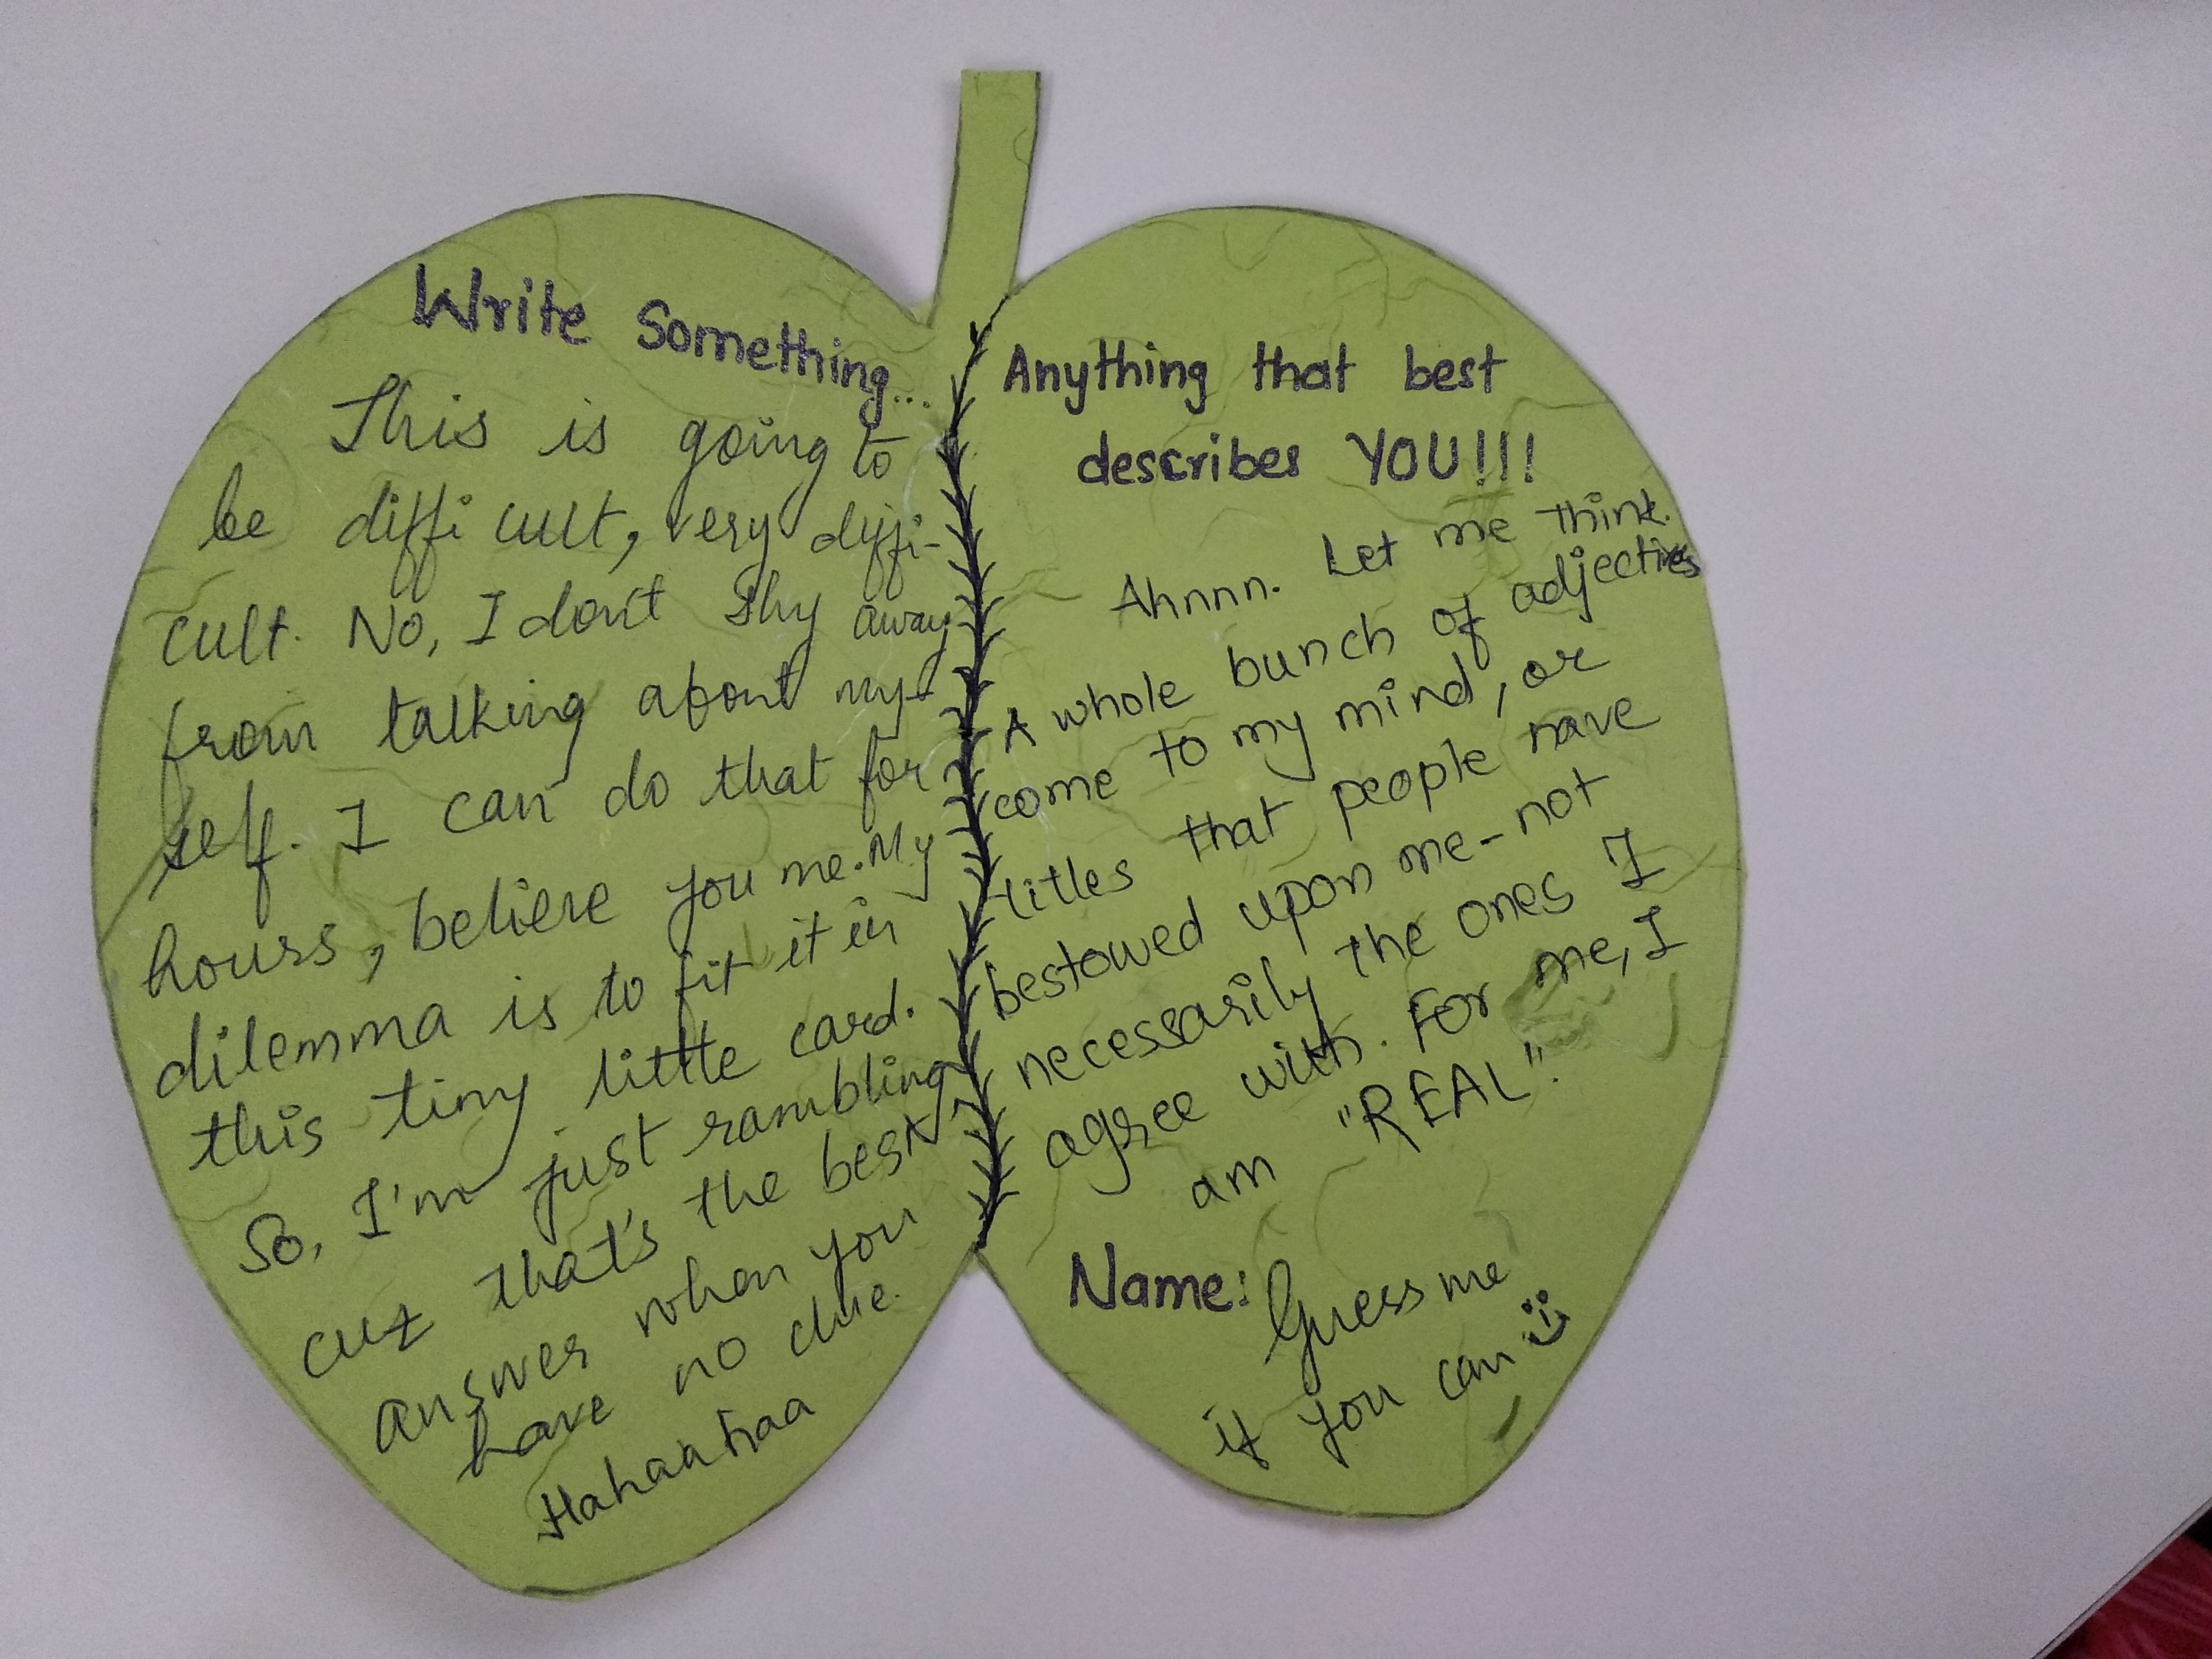 Write Something...
This is going to
be difficult, very diffi-
cult. No, I don't shy away
from talking about my-
self. I can do that for
hours, believe you me. My
dilemma is to fit it in
this tiny little card.
So, I'm just rambling
cuz that's the best
answer when you
have no clue.
Hahaahaa
Anything that best
describes YOU!!!
Ahnnn. Let me think.
A whole bunch of adjectives
come to my mind, or
titles that people have
bestowed upon me - not
necessarily the ones I
agree with. For me, I
am "REAL".
Name: Guess me
if you can